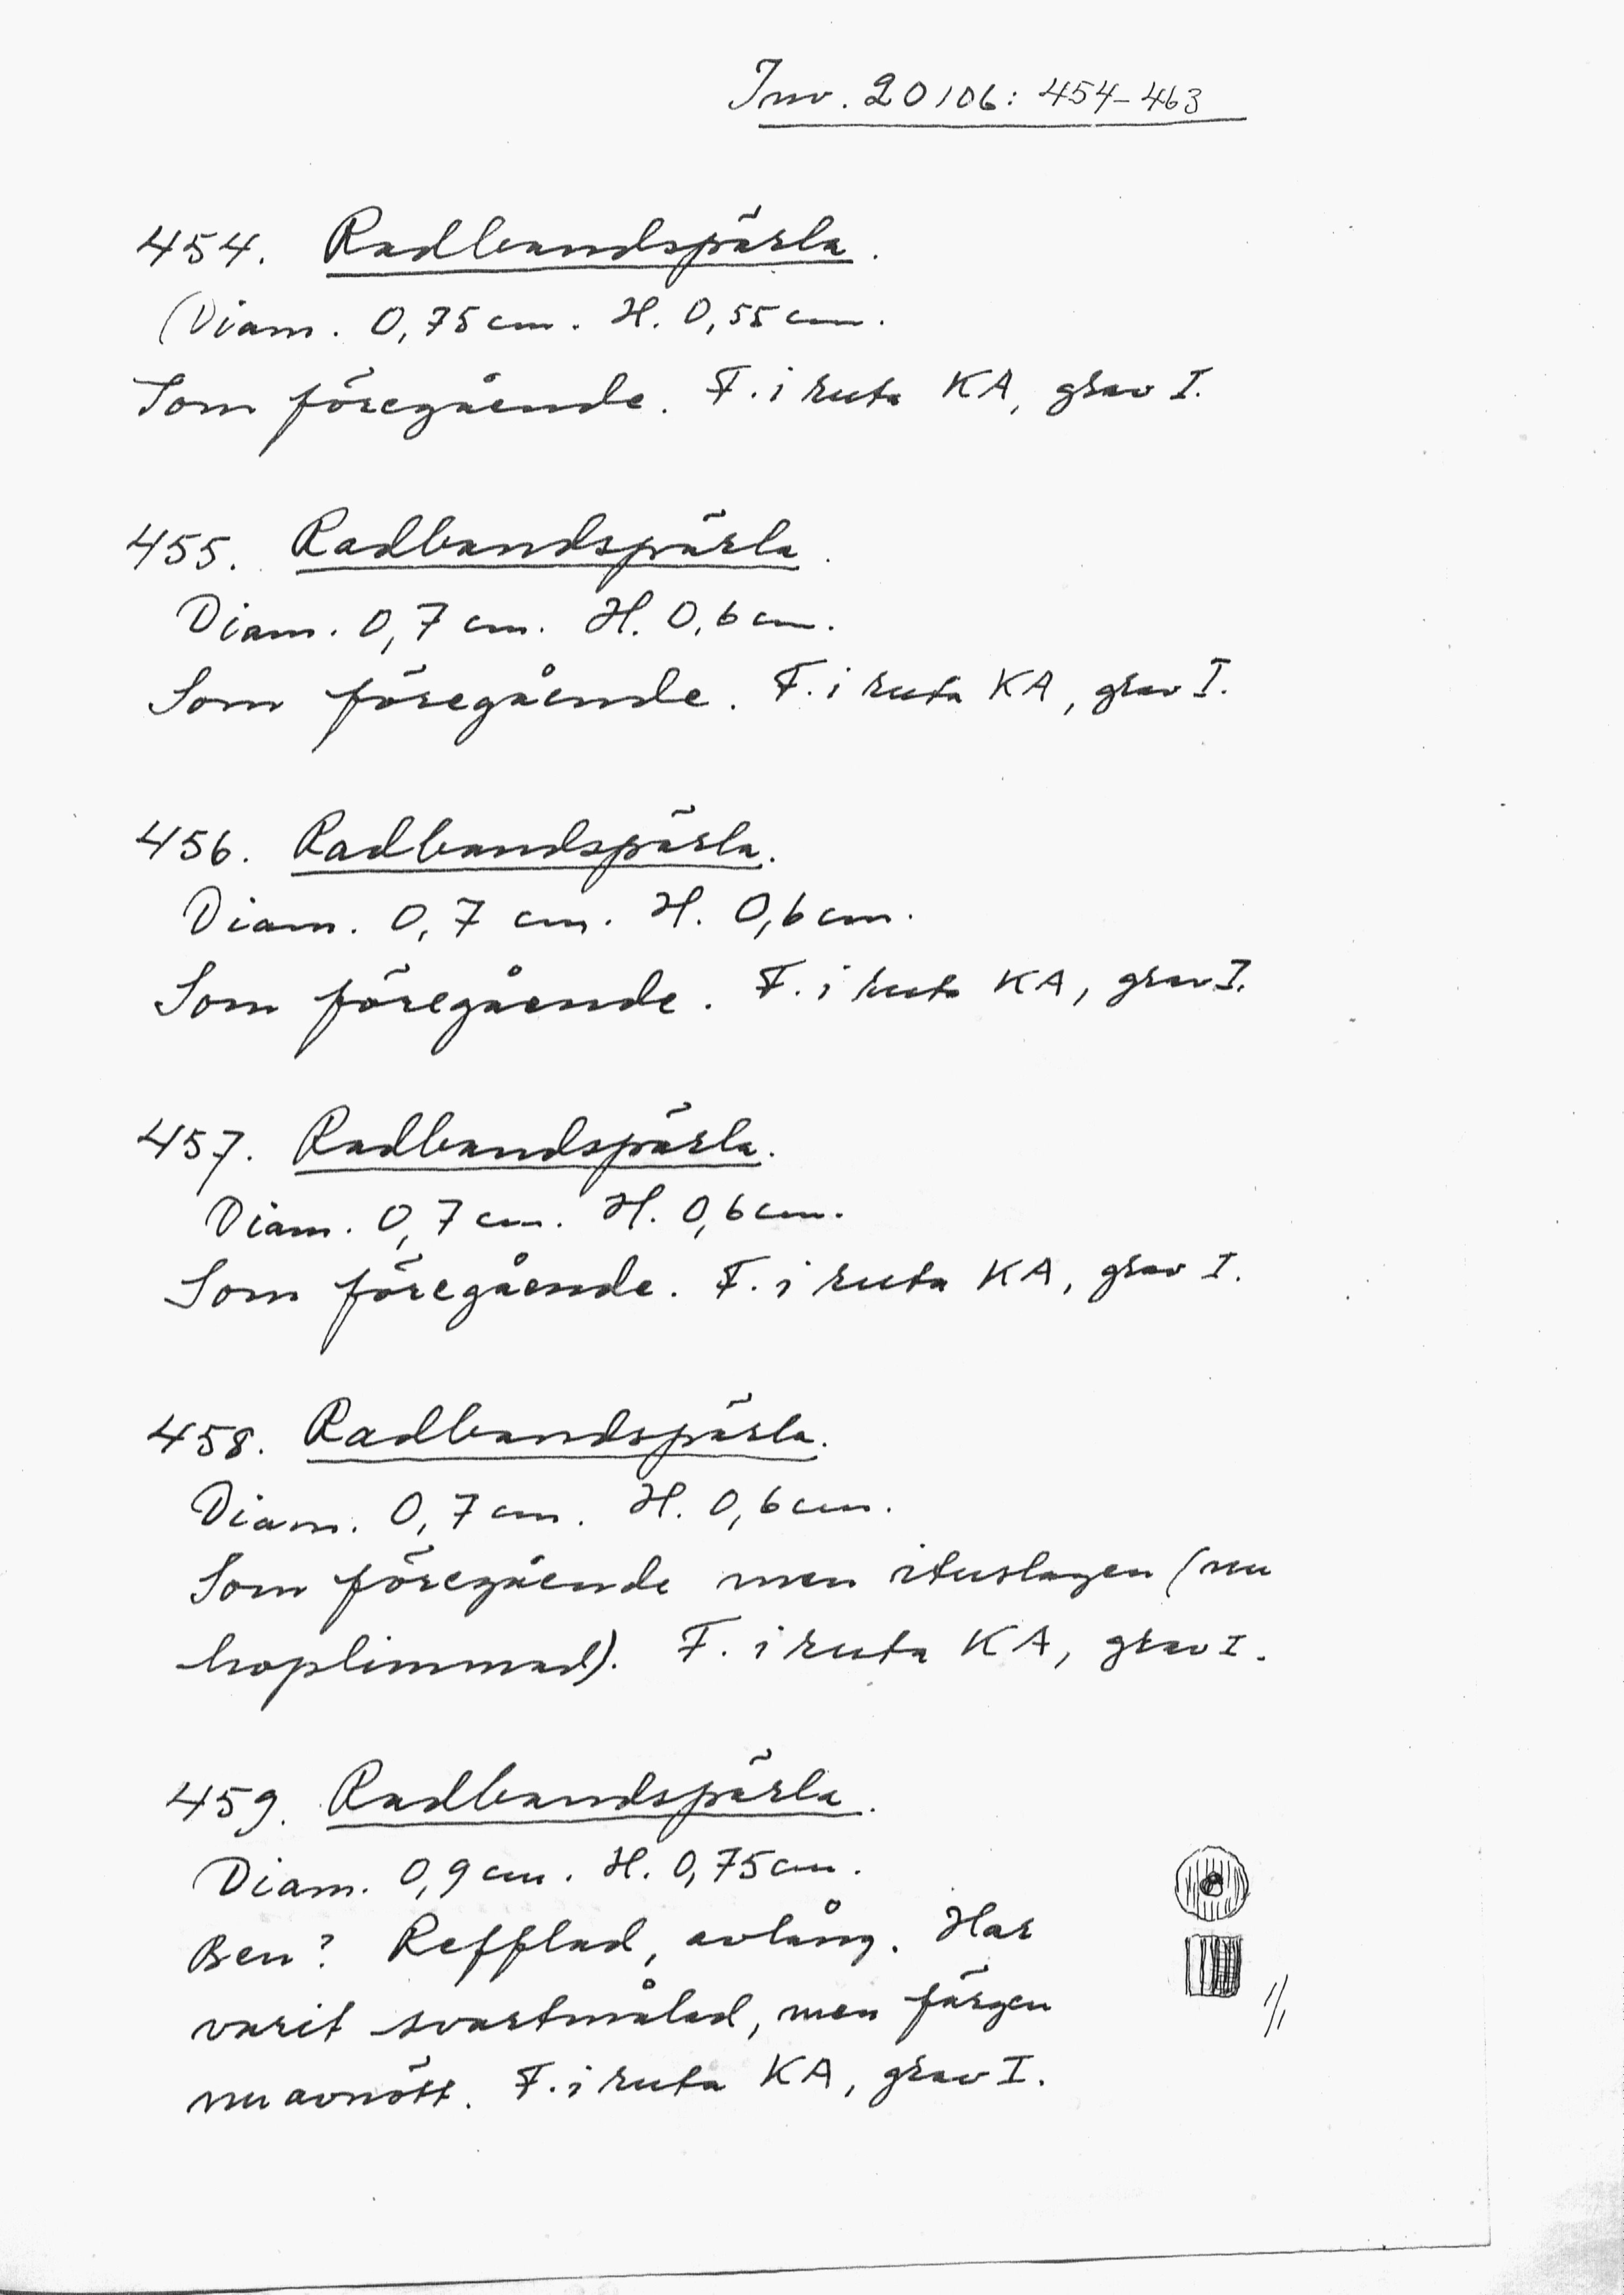 Inv. 20106: 454-463
454. Radbandspärla.
Diam. 0,75 cm. H. 0,55 cm.
Som föregående. F. i ruta KA, grav I.
455. Radbandspärla.
Diam. 0,7 cm. H. 0,6 cm.
Som föregående. F. i ruta KA, grav I.
456. Radbandspärla.
Diam. 0,7 cm. H. 0,6 cm.
Som föregående. F. i ruta KA, grav I.
457. Radbandspärla.
Diam. 0,7 cm. H. 0,6 cm.
Som föregående. F. i ruta KA, grav I.
458. Radbandspärla.
Diam. 0,7 cm. H. 0,6 cm.
Som föregående men ituslagen (nu
hoplimmad). F. i ruta KA, grav I.
459. Radbandspärla.
Diam. 0,9 cm. H. 0,75 cm.
Ben? Refflad, avlång. Har
varit svartmålad, men färgen
nu avnött. F. i ruta KA, grav I.
1/1